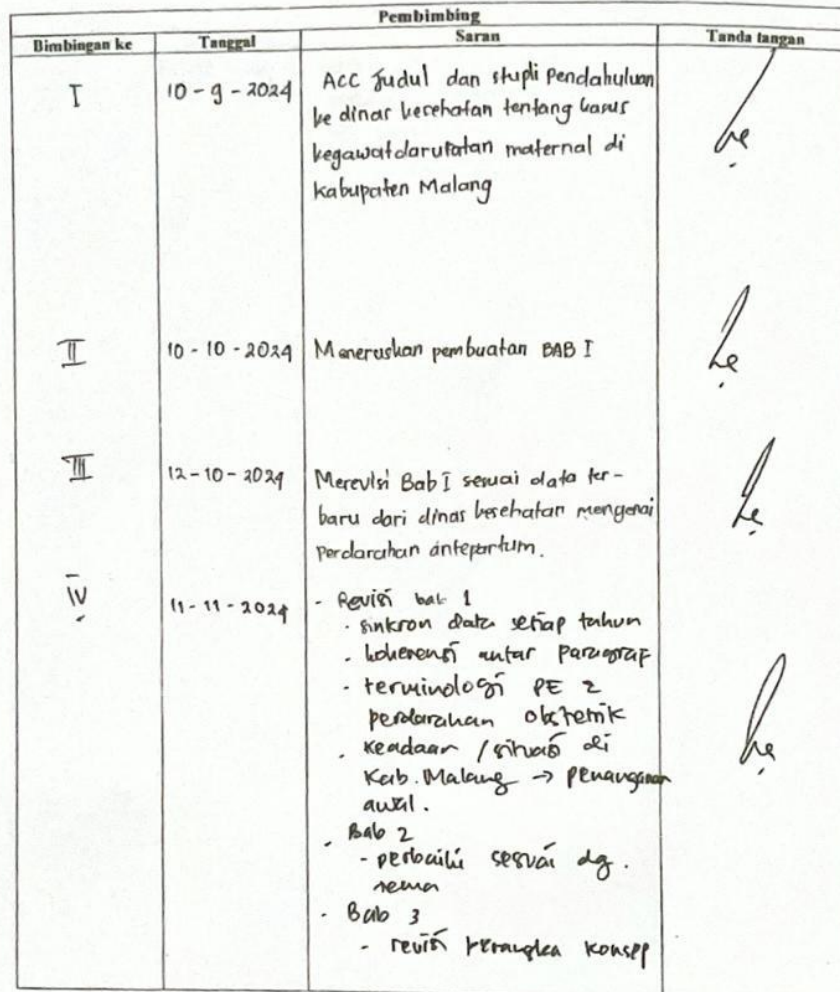 Pembimbing
Bimbingan ke Tanggal Saran Tanda tangan
I 10 - 9 - 2024 ACC Judul dan stupli Pendahuluan
ke dinas kesehatan tentang kasus
kegawatdaruratan maternal di
Kabupaten Malang
II 10 - 10 - 2024 Meneruskan pembuatan BAB I
III 12 - 10 - 2024 Merevisi Bab I sesuai data ter-
baru dari dinas kesehatan mengenai
Perdarahan antepartum.
IV 11 - 11 - 2024 - Revisi bab 1
· sinkron data setiap tahun
- koherensi antar Paragraf
- terminologi PE 2
perdarahan obstetrik
· keadaan / situasi di
Kab. Malang → penanganan
awal.
- Bab 2
- perbaiki sesuai dg.
- Bab 3
- revisi kerangka konsep